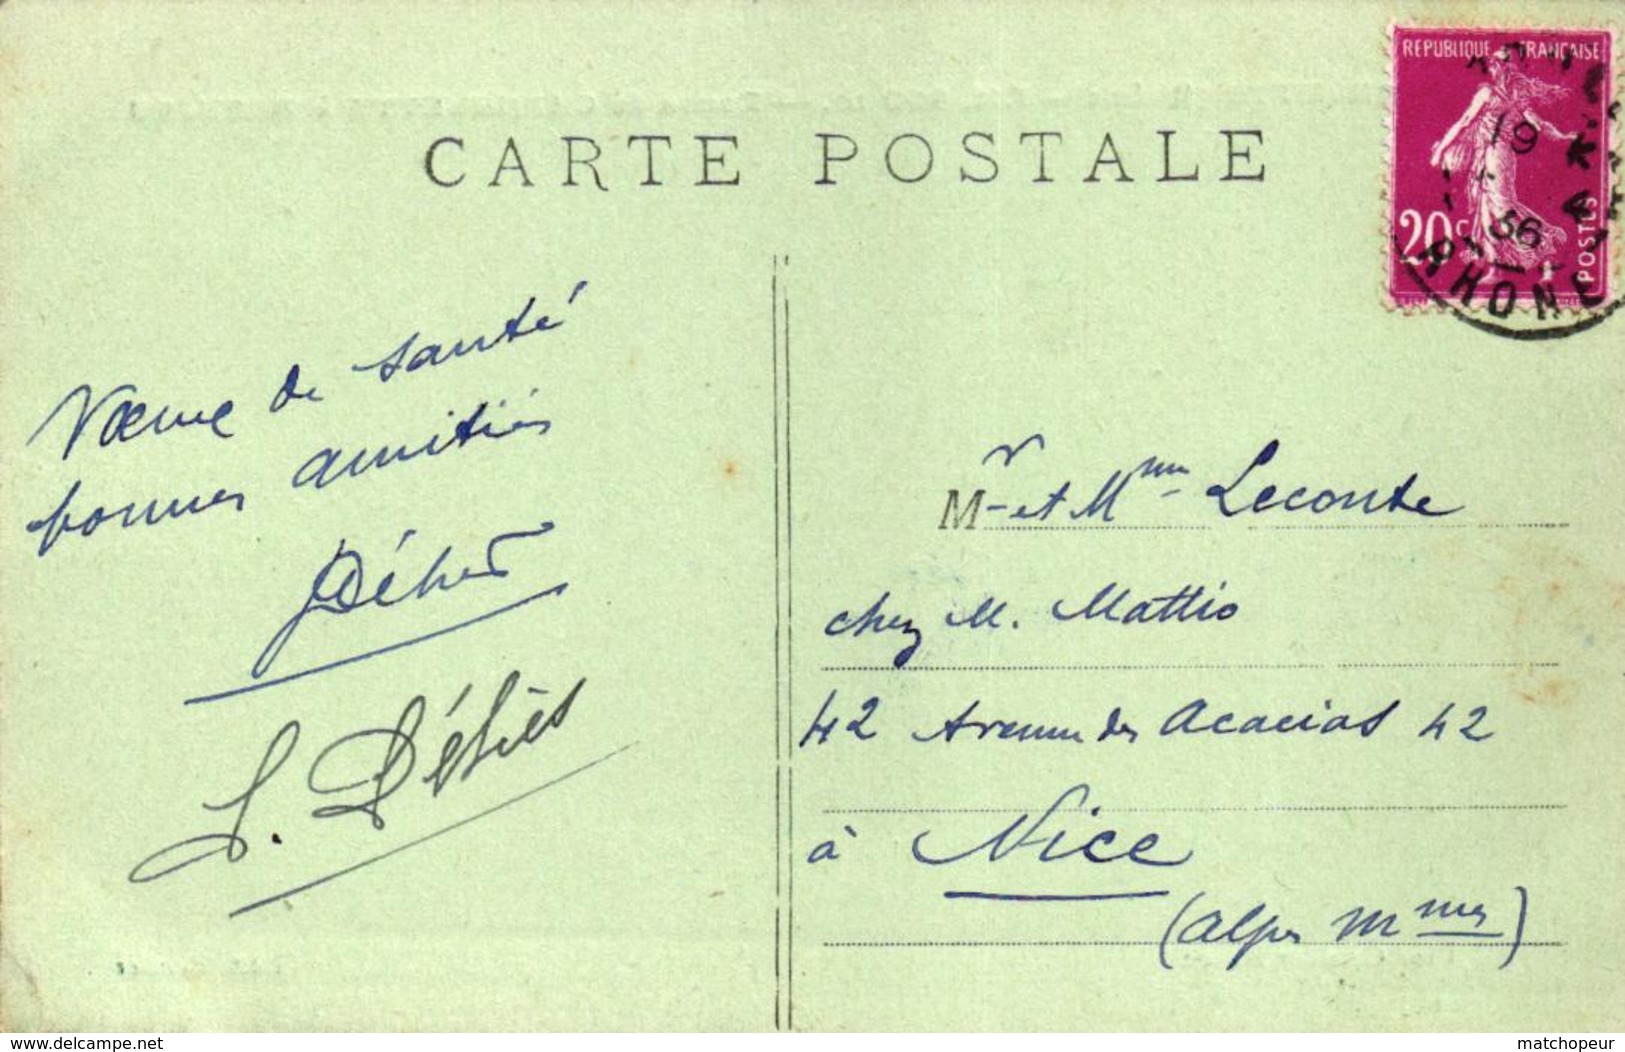 CARTE POSTALE
REPUBLIQUE FRANÇAISE
20c
POSTES
19
36
RHONE
Vœux de santé
bonnes amitiés
L. Déliès
Mr et Mme Leconte
chez M. Mattio
42 Avenue des Acacias 42
à Nice
(Alpes Mmes)
delcampe.net
matchopeur